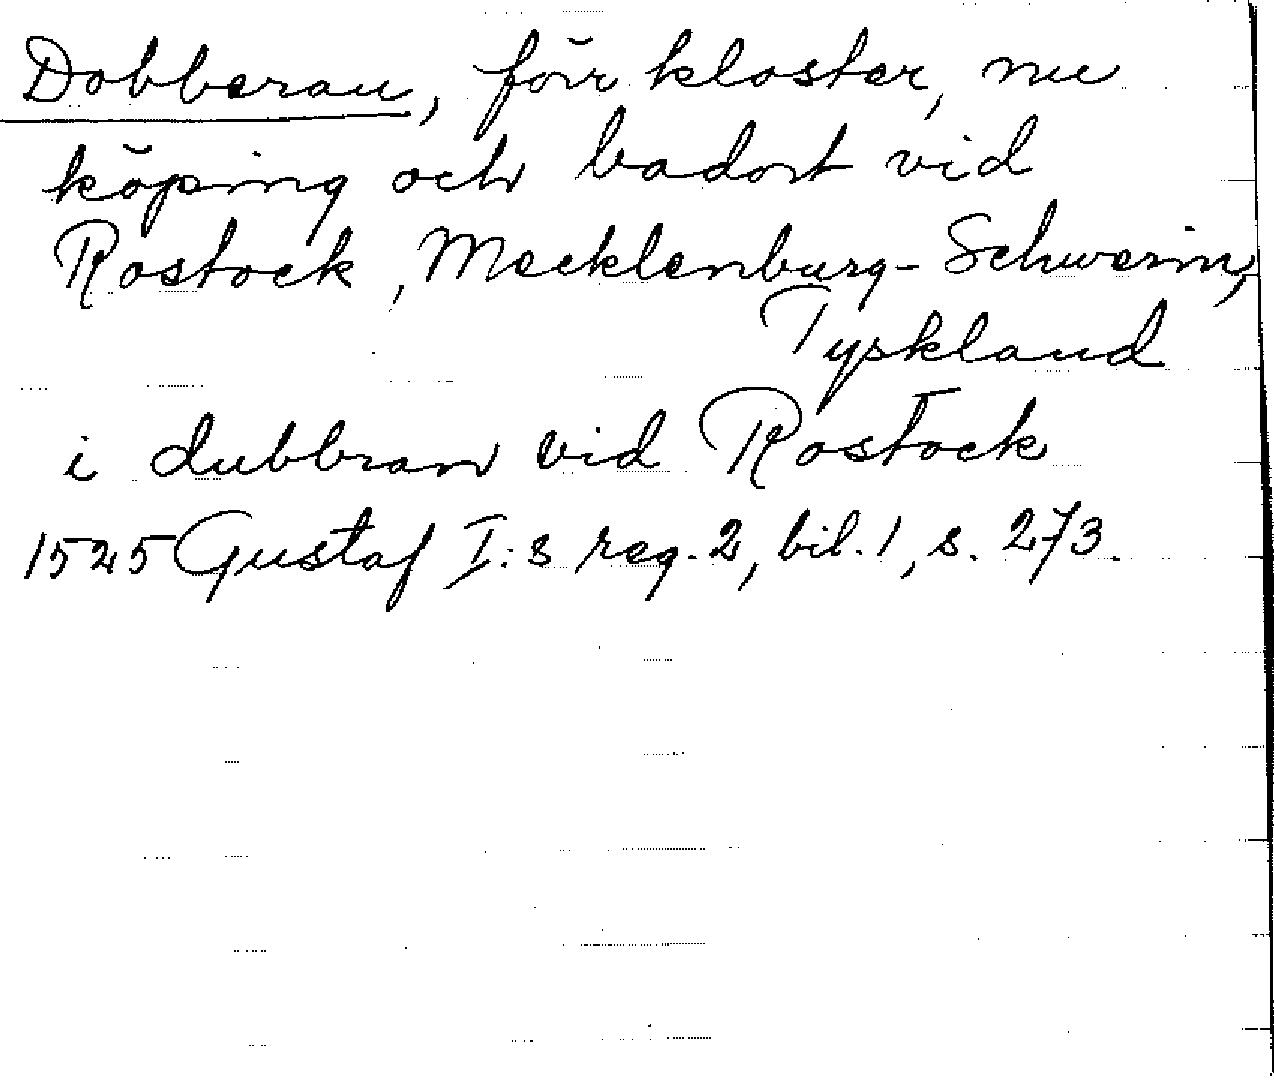 Dobberau, förr kloster, nu
köping och badort vid
Rostock, Mecklenburg-Schwerin,
Tyskland
i dubbran vid Rostock
1525 Gustaf I:s reg. 2, bil. 1, s. 273.